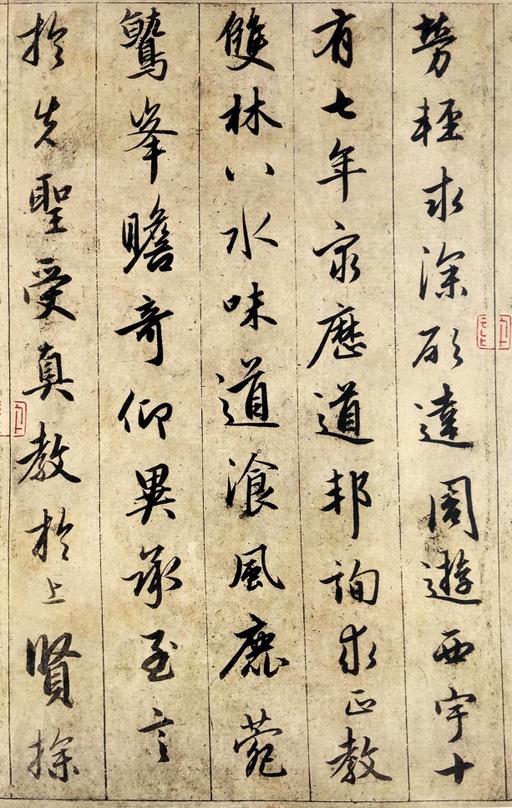 勞輕求深欲達周遊西宇十
有七年窮歷道邦詢求正教
雙林八水味道飡風鹿菀
鷲峯瞻奇仰異承至言
於先聖受真教於上賢探